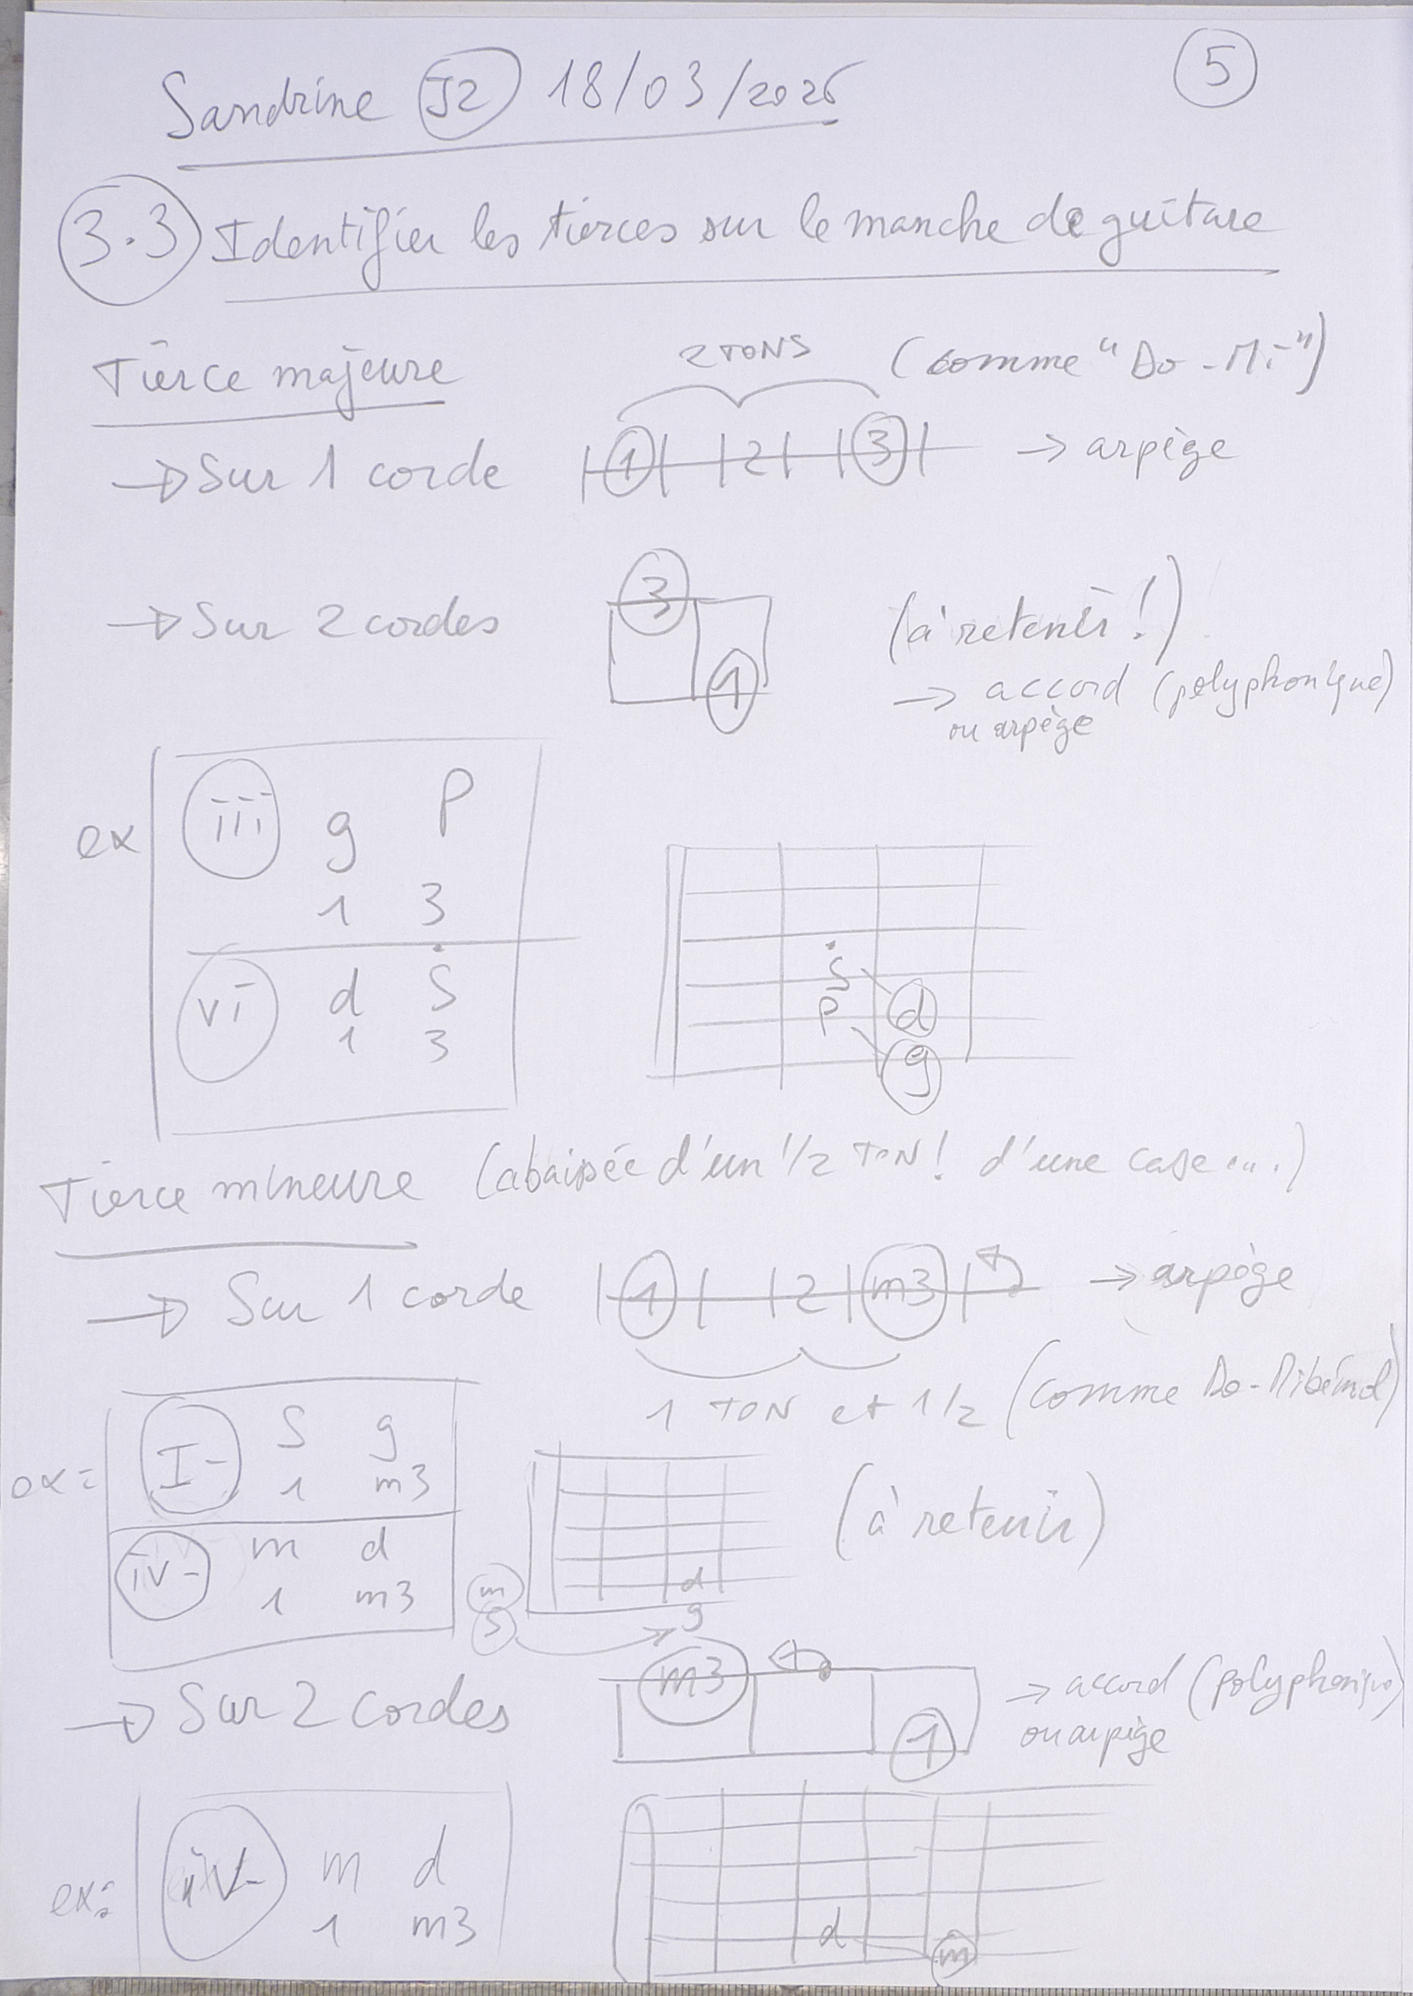 Sandrine J2 18/03/2026
5
3.3 Identifier les tierces sur le manche de guitare
Tierce majeure
2 TONS (comme "Do-Mi")
→ Sur 1 corde 1 2 3 → arpège
→ Sur 2 cordes 3 1 (à retenir!)
→ accord (polyphonique)
ou arpège
ex iii g P
1 3
vi d S
1 3
S
P d
g
Tierce mineure (abaissée d'un 1/2 TON! d'une case...)
→ Sur 1 corde 1 2 m3 → arpège
1 TON et 1/2 (comme Do-Mibémol)
ex: I- S g
1 m3
iv- m d
1 m3
m d
S g
(à retenir)
→ Sur 2 cordes m3 1 → accord (polyphonique)
ou arpège
ex: iv- m d
1 m3
d m